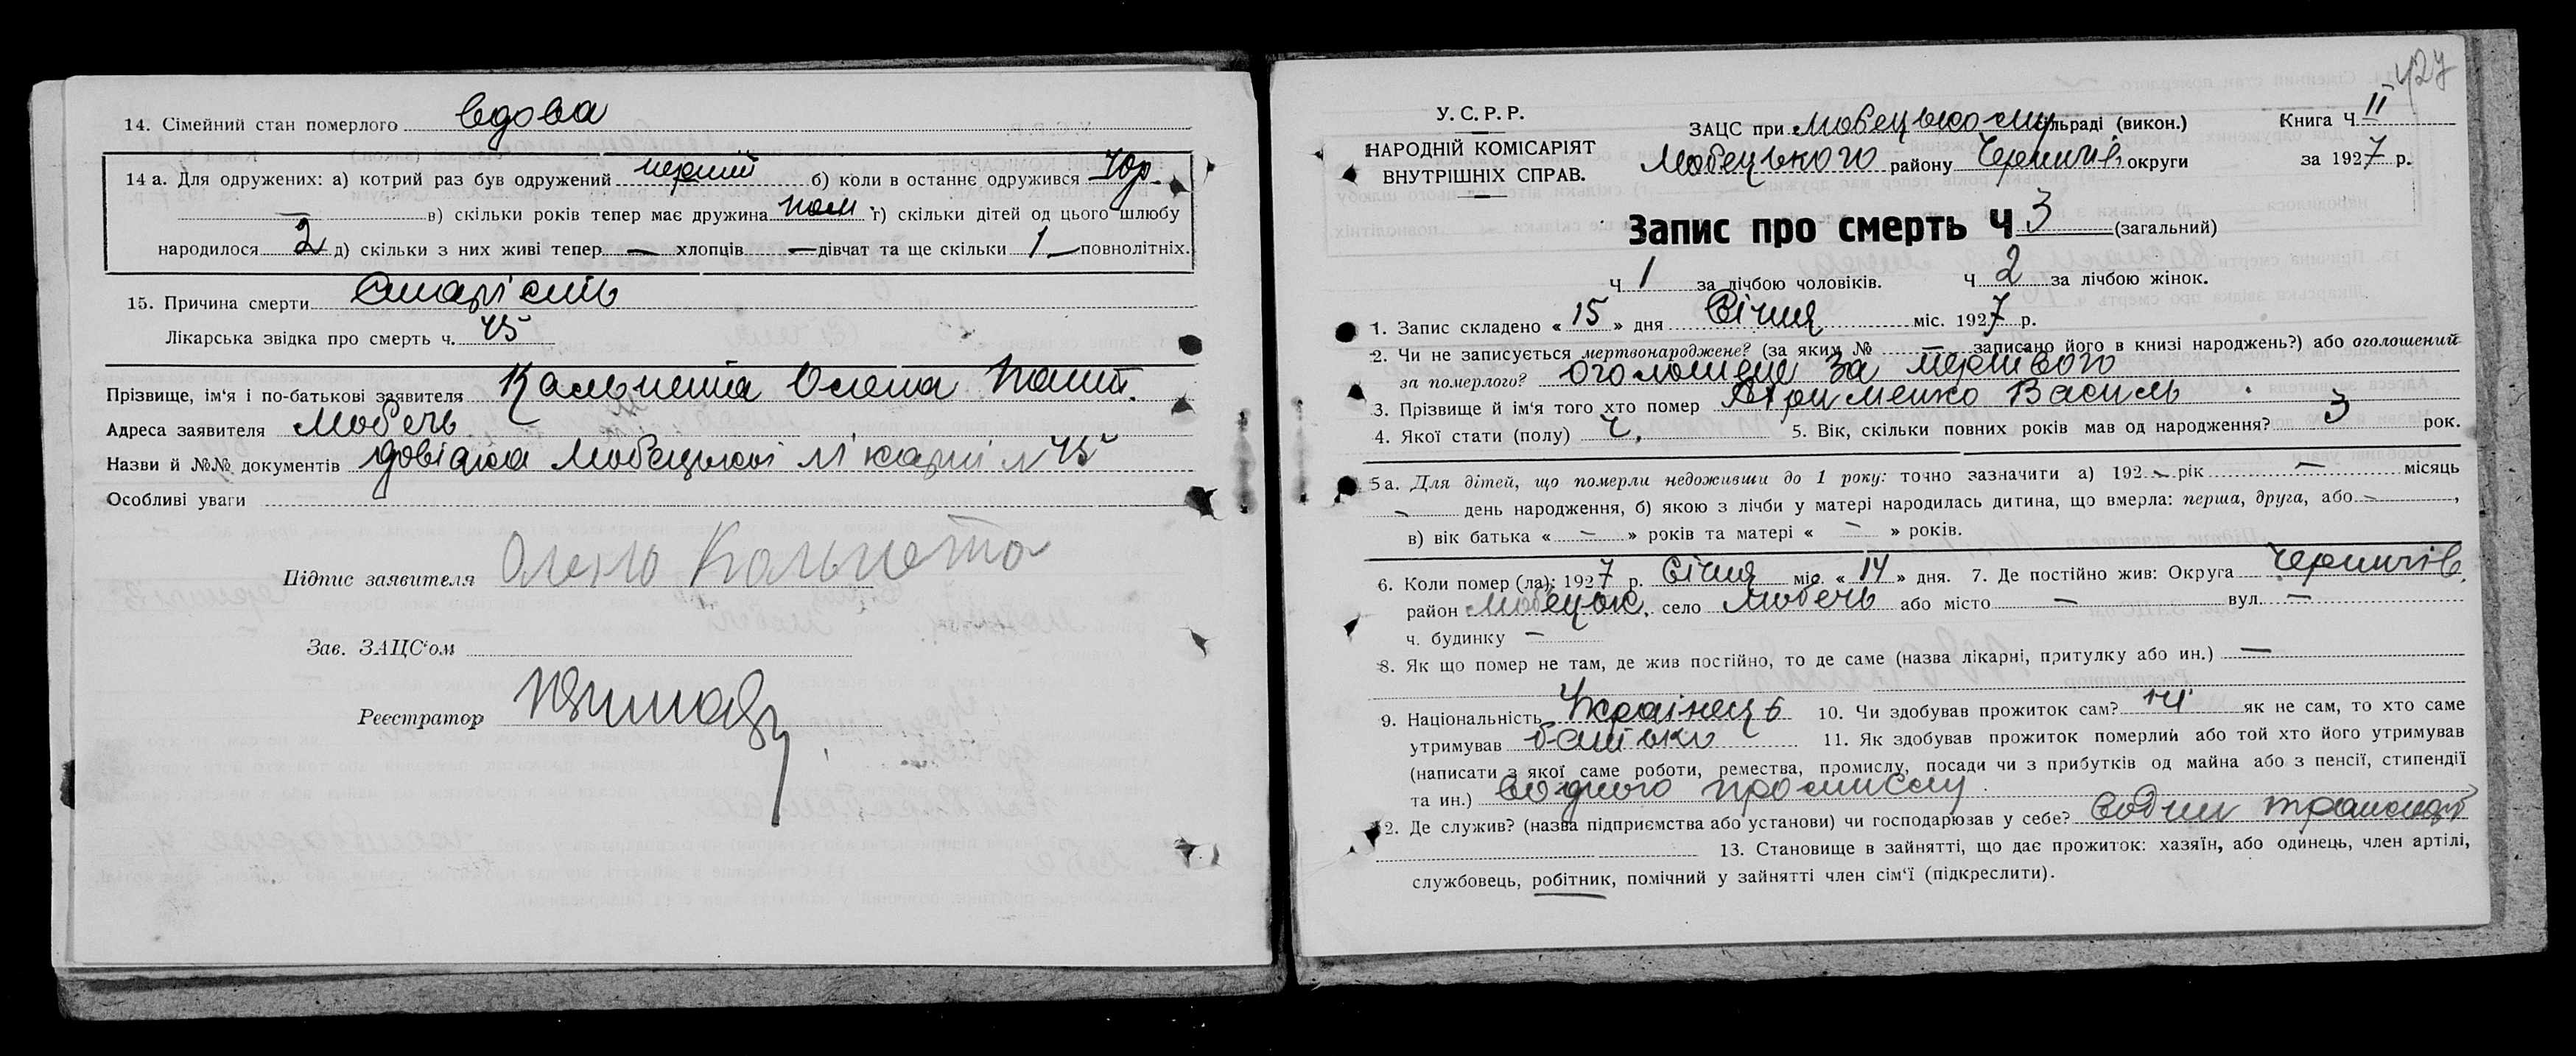 14. Сімейний стан померлого вдова
14 а. Для одружених: а) котрий раз був одружений перший б) коли в останнє одружився 40р.
— в) скільки років тепер має дружина пом г) скільки дітей од цього шлюбу
народилося 2 д) скільки з них живі тепер — хлопців — дівчат та ще скільки 1 — повнолітніх.
15. Причина смерти Старість
Лікарська звідка про смерть ч. 45
Прізвище, ім'я і по-батькові заявителя Кальнета Олена
Адреса заявителя Любечь
Назви й №№ документів довідка Любецької лікарні № 45
Особливі уваги
Підпис заявителя Олена Кальнета
Зав. ЗАЦС'ом
Реєстратор
427
У. С. Р. Р.
НАРОДНІЙ КОМІСАРІЯТ
ВНУТРІШНІХ СПРАВ.
ЗАЦС при Любецькому сільраді (викон.) Книга Ч. II
Любецького району Чернігів округи за 1927 р.
Запис про смерть Ч 3 (загальний)
Ч 1 за лічбою чоловіків. Ч 2 за лічбою жінок.
1. Запис складено « 15 » дня Січня міс. 1927 р.
2. Чи не записується мертвонароджене? (за яким № — записано його в книзі народжень?) або оголошений
за померлого? оголошено за мертвого
3. Прізвище й ім'я того хто помер Яременко Василь
4. Якої стати (полу) Ч. 5. Вік, скільки повних років мав од народження? 3 рок.
5а. Для дітей, що померли недоживши до 1 року: точно зазначити а) 192 — рік — місяць
— день народження, б) якою з лічби у матері народилась дитина, що вмерла: перша, друга, або — ,
в) вік батька « — » років та матері « — » років.
6. Коли помер (ла): 1927 р. Січня міс. « 14 » дня. 7. Де постійно жив: Округа Чернигів.
район Любецьк. село Любечь або місто — вул. —
ч. будинку —
8. Як що помер не там, де жив постійно, то де саме (назва лікарні, притулку або ин.) —
9. Національність Українець 10. Чи здобував прожиток сам? ні як не сам, то хто саме
утримував батько 11. Як здобував прожиток померлий або той хто його утримував
(написати з якої саме роботи, ремества, промислу, посади чи з прибутків од майна або з пенсії, стипендії
та ин.) водного промислу
12. Де служив? (назва підприємства або установи) чи господарював у себе? Водний транспорт
13. Становище в зайнятті, що дає прожиток: хазяїн, або одинець, член артілі,
службовець, робітник, помічний у зайнятті член сім'ї (підкреслити).